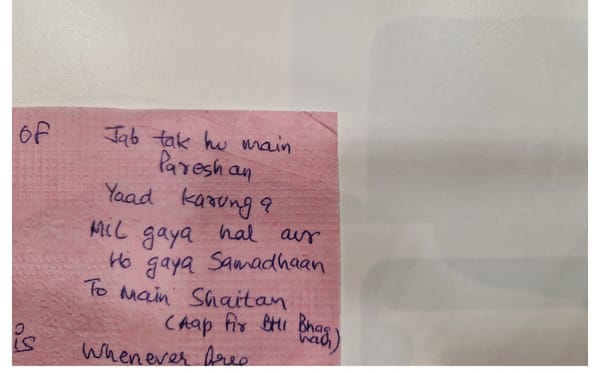 OF Jab tak hu main
Pareshan
Yaad karunga
Mil gaya hal aur
Ho gaya Samadhaan
To Main Shaitan
(Aap fir BHI Bhag
wan)
is Whenever free